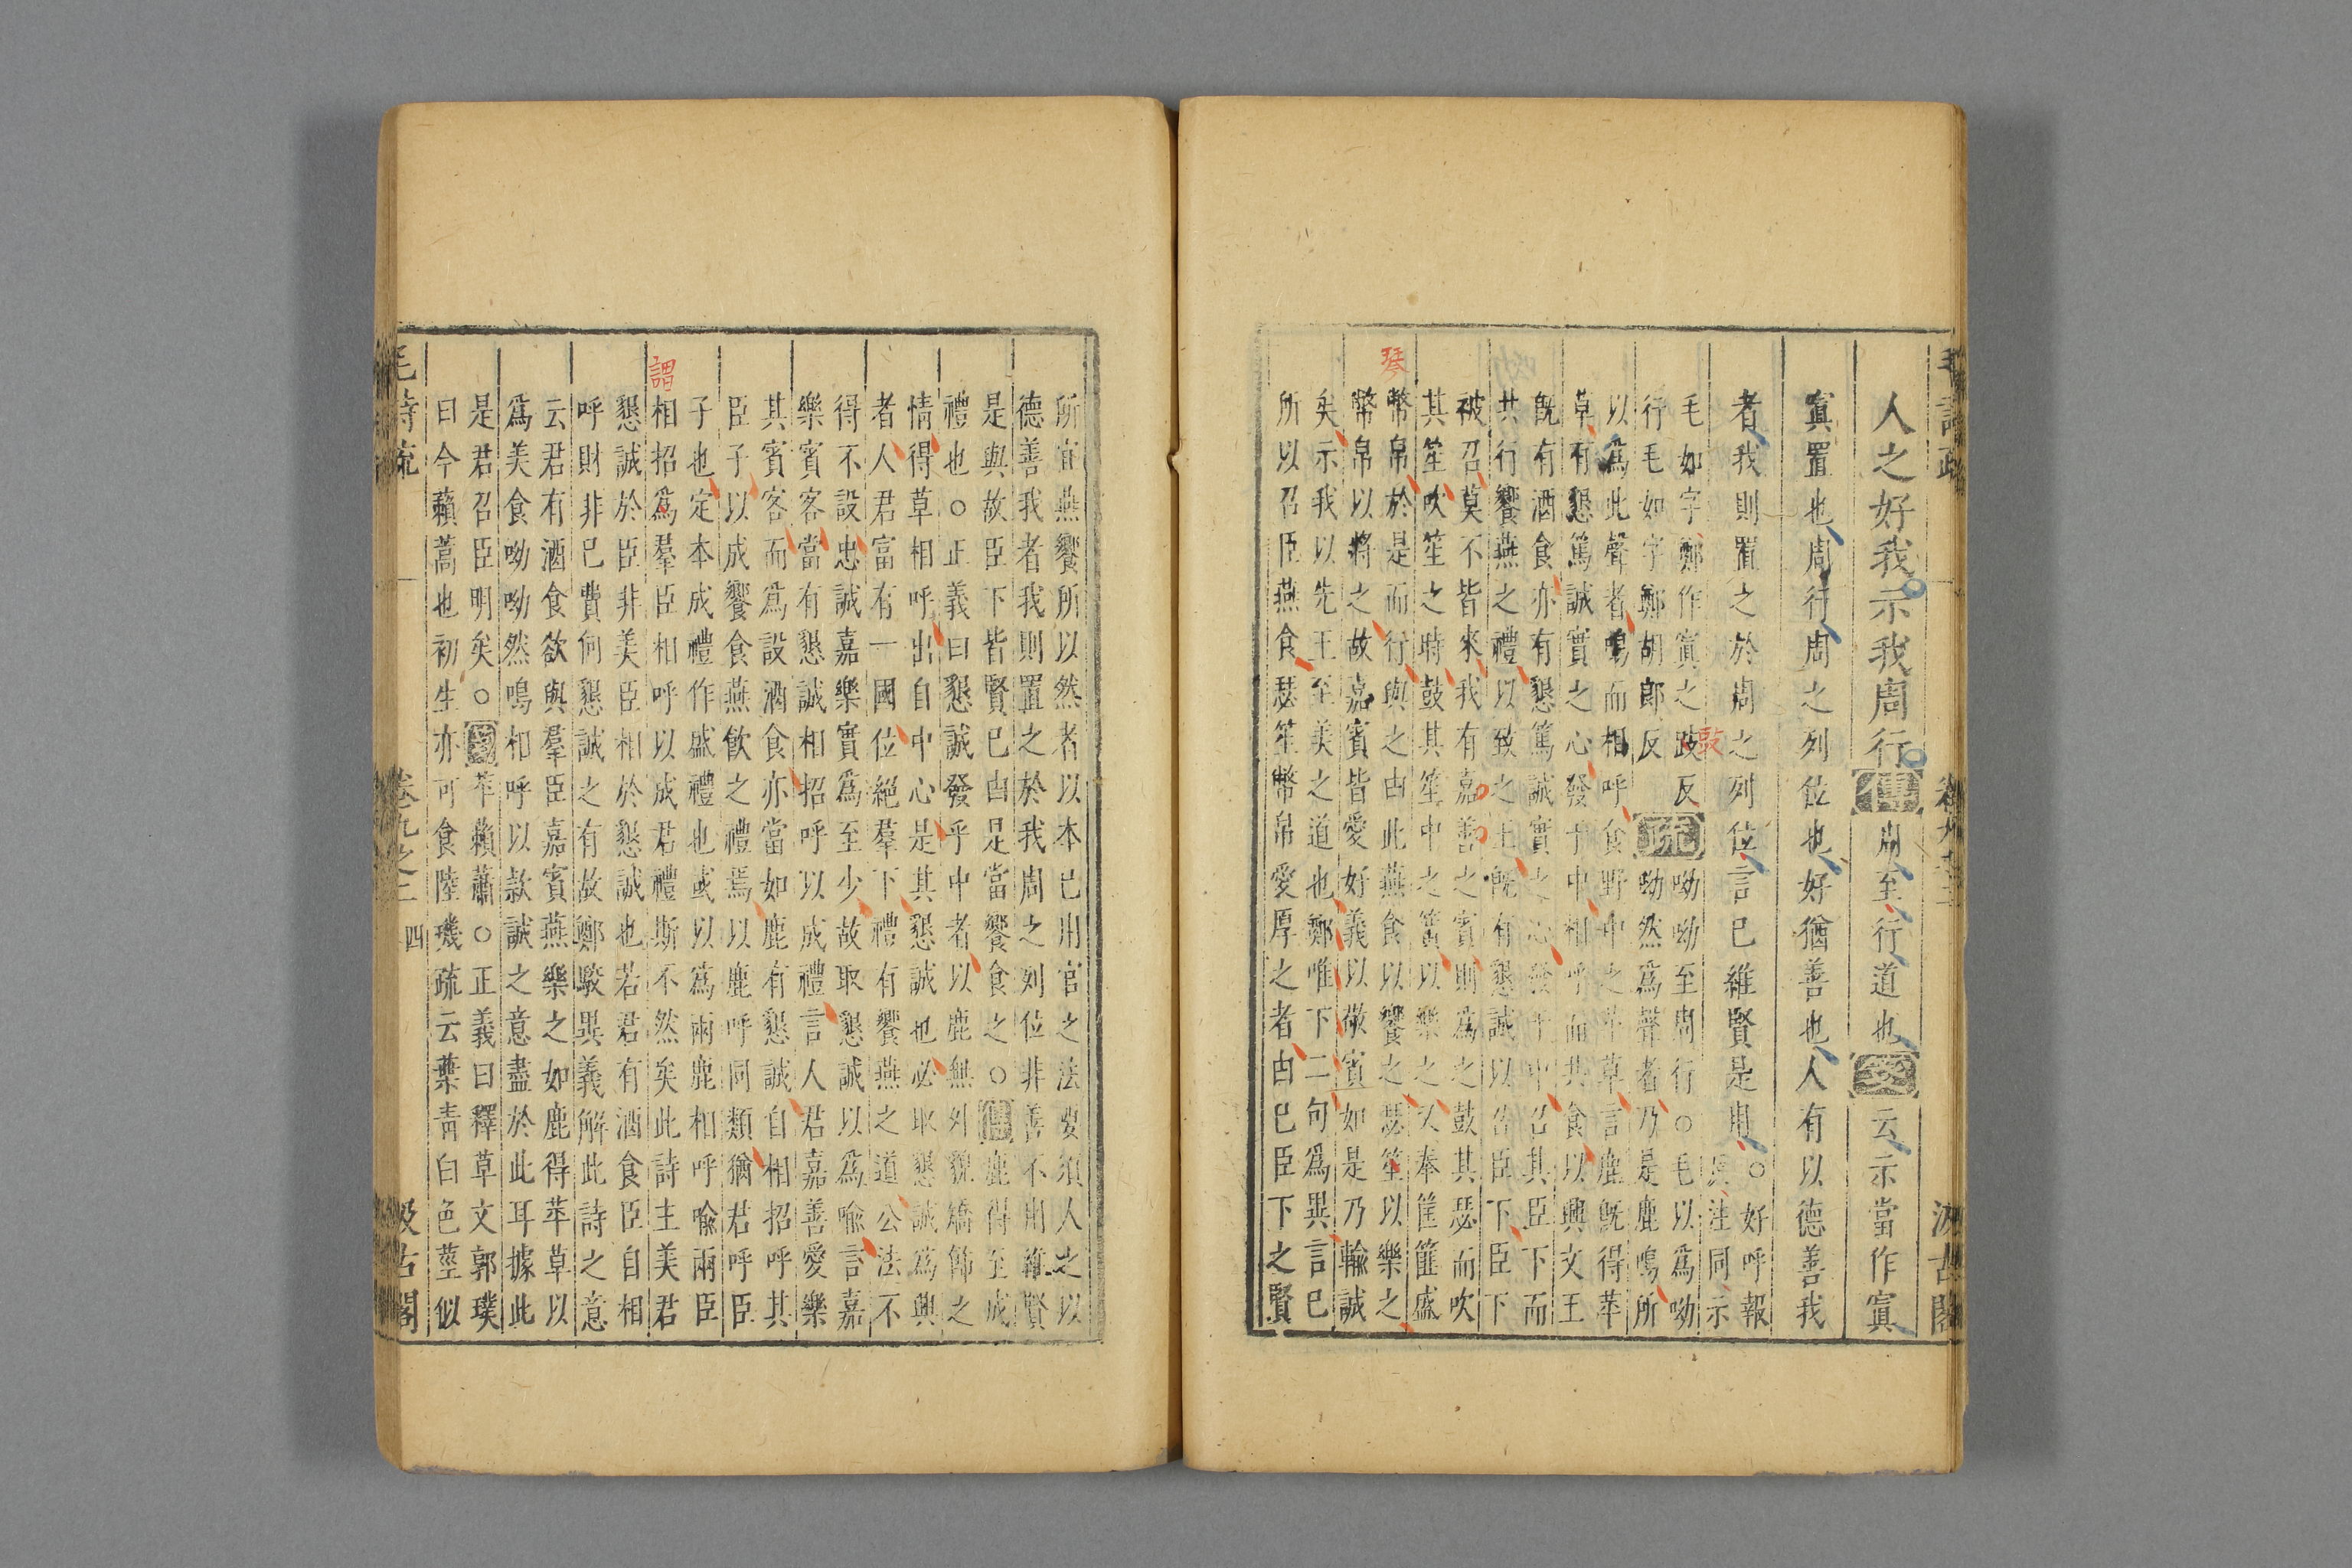 人之好我示我周行傳周至行道也箋云示當作寘
寘置也周行周之列位也好猶善也人有以德善我
者我則置之於周之列位言已維賢是用○好呼報
反注同示
毛如字鄭作寘之豉反
行毛如字鄭胡郎反
疏呦呦至周行○毛以為呦
呦然為聲者乃是鹿鳴所
以為此聲者鳴而相呼食野中之苹草言鹿既得苹
草有懇篤誠實之心發于中相呼而共食以興文王
既有酒食亦有懇篤誠實之心發于中召其臣下而
共行饗燕之禮以致之王既有懇誠以召臣下臣下
被召莫不皆來我有嘉善之賓則為之鼓其瑟而吹
其笙吹笙之時鼓其笙中之簧以樂之又奉筐篚盛
幣帛於是而行與之由此燕食以饗之瑟笙以樂之
幣帛以將之故嘉賓皆愛好義以敬賓如是乃輸誠
矣示我以先王至美之道也鄭唯下二句為異言已
所以召臣燕食瑟笙幣帛愛厚之者由已臣下之賢
琴
毛詩疏
卷九之二
汲古閣
所宜燕饗所以然者以本已用官之法要須人之以
德善我者我則置之於我周之列位非善不用維賢
是與故臣下皆賢已由是當饗食之○傳鹿得至成
禮也○正義曰懇誠發乎中者以鹿無外貌矯飾之
情得草相呼出自中心是其懇誠也必取懇誠為興
者人君富有一國位絕羣下禮有饗燕之道公法不
得不設忠誠嘉樂實為至少故取懇誠以為喻言嘉
樂賓客當有懇誠相招呼以成禮言人君嘉善愛樂
其賓客而為設酒食亦當如鹿有懇誠自相招呼其
臣子以成饗食燕飲之禮焉以鹿呼同類猶君呼臣
子也定本成禮作盛禮也或以為兩鹿相呼喻兩臣
相招為羣臣相呼以成君禮斯不然矣此詩主美君
懇誠於臣非美臣相於懇誠也若君有酒食臣自相
呼財非已費何懇誠之有故鄭駁異義解此詩之意
云君有酒食欲與羣臣嘉賓燕樂之如鹿得苹草以
為美食呦呦然鳴相呼以款誠之意盡於此耳據此
是君召臣明矣○箋苹藾蕭○正義曰釋草文郭璞
曰今藾蒿也初生亦可食陸璣疏云葉青白色莖似
謂
毛詩疏
卷九之二
四
汲古閣